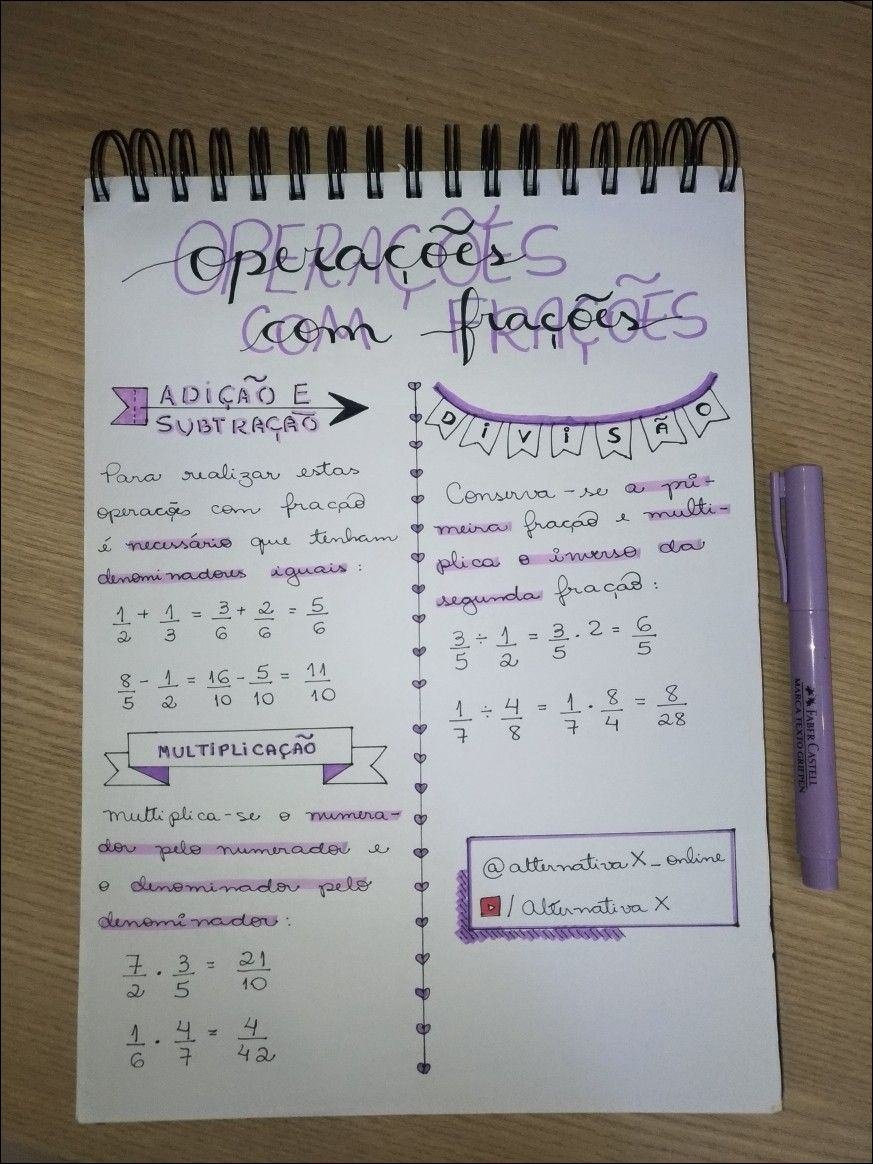 OPERAÇÕES
operações
COM FRAÇÕES
com frações
ADIÇÃO E
SUBTRAÇÃO
Para realizar estas
operações com fração
é necessário que tenham
denominadores iguais:
1/2 + 1/3 = 3/6 + 2/6 = 5/6
8/5 - 1/2 = 16/10 - 5/10 = 11/10
MULTIPLICAÇÃO
multiplica-se o numera-
dor pelo numerador e
o denominador pelo
denominador:
7/2 . 3/5 = 21/10
1/6 . 4/7 = 4/42
DIVISÃO
Conserva-se a pri-
meira fração e multi-
plica o inverso da
segunda fração:
3/5 ÷ 1/2 = 3/5 . 2 = 6/5
1/7 ÷ 4/8 = 1/7 . 8/4 = 8/28
@alternativaX_online
/ Alternativa X
FABER CASTELL
MARCA TEXTO GRIFPEN